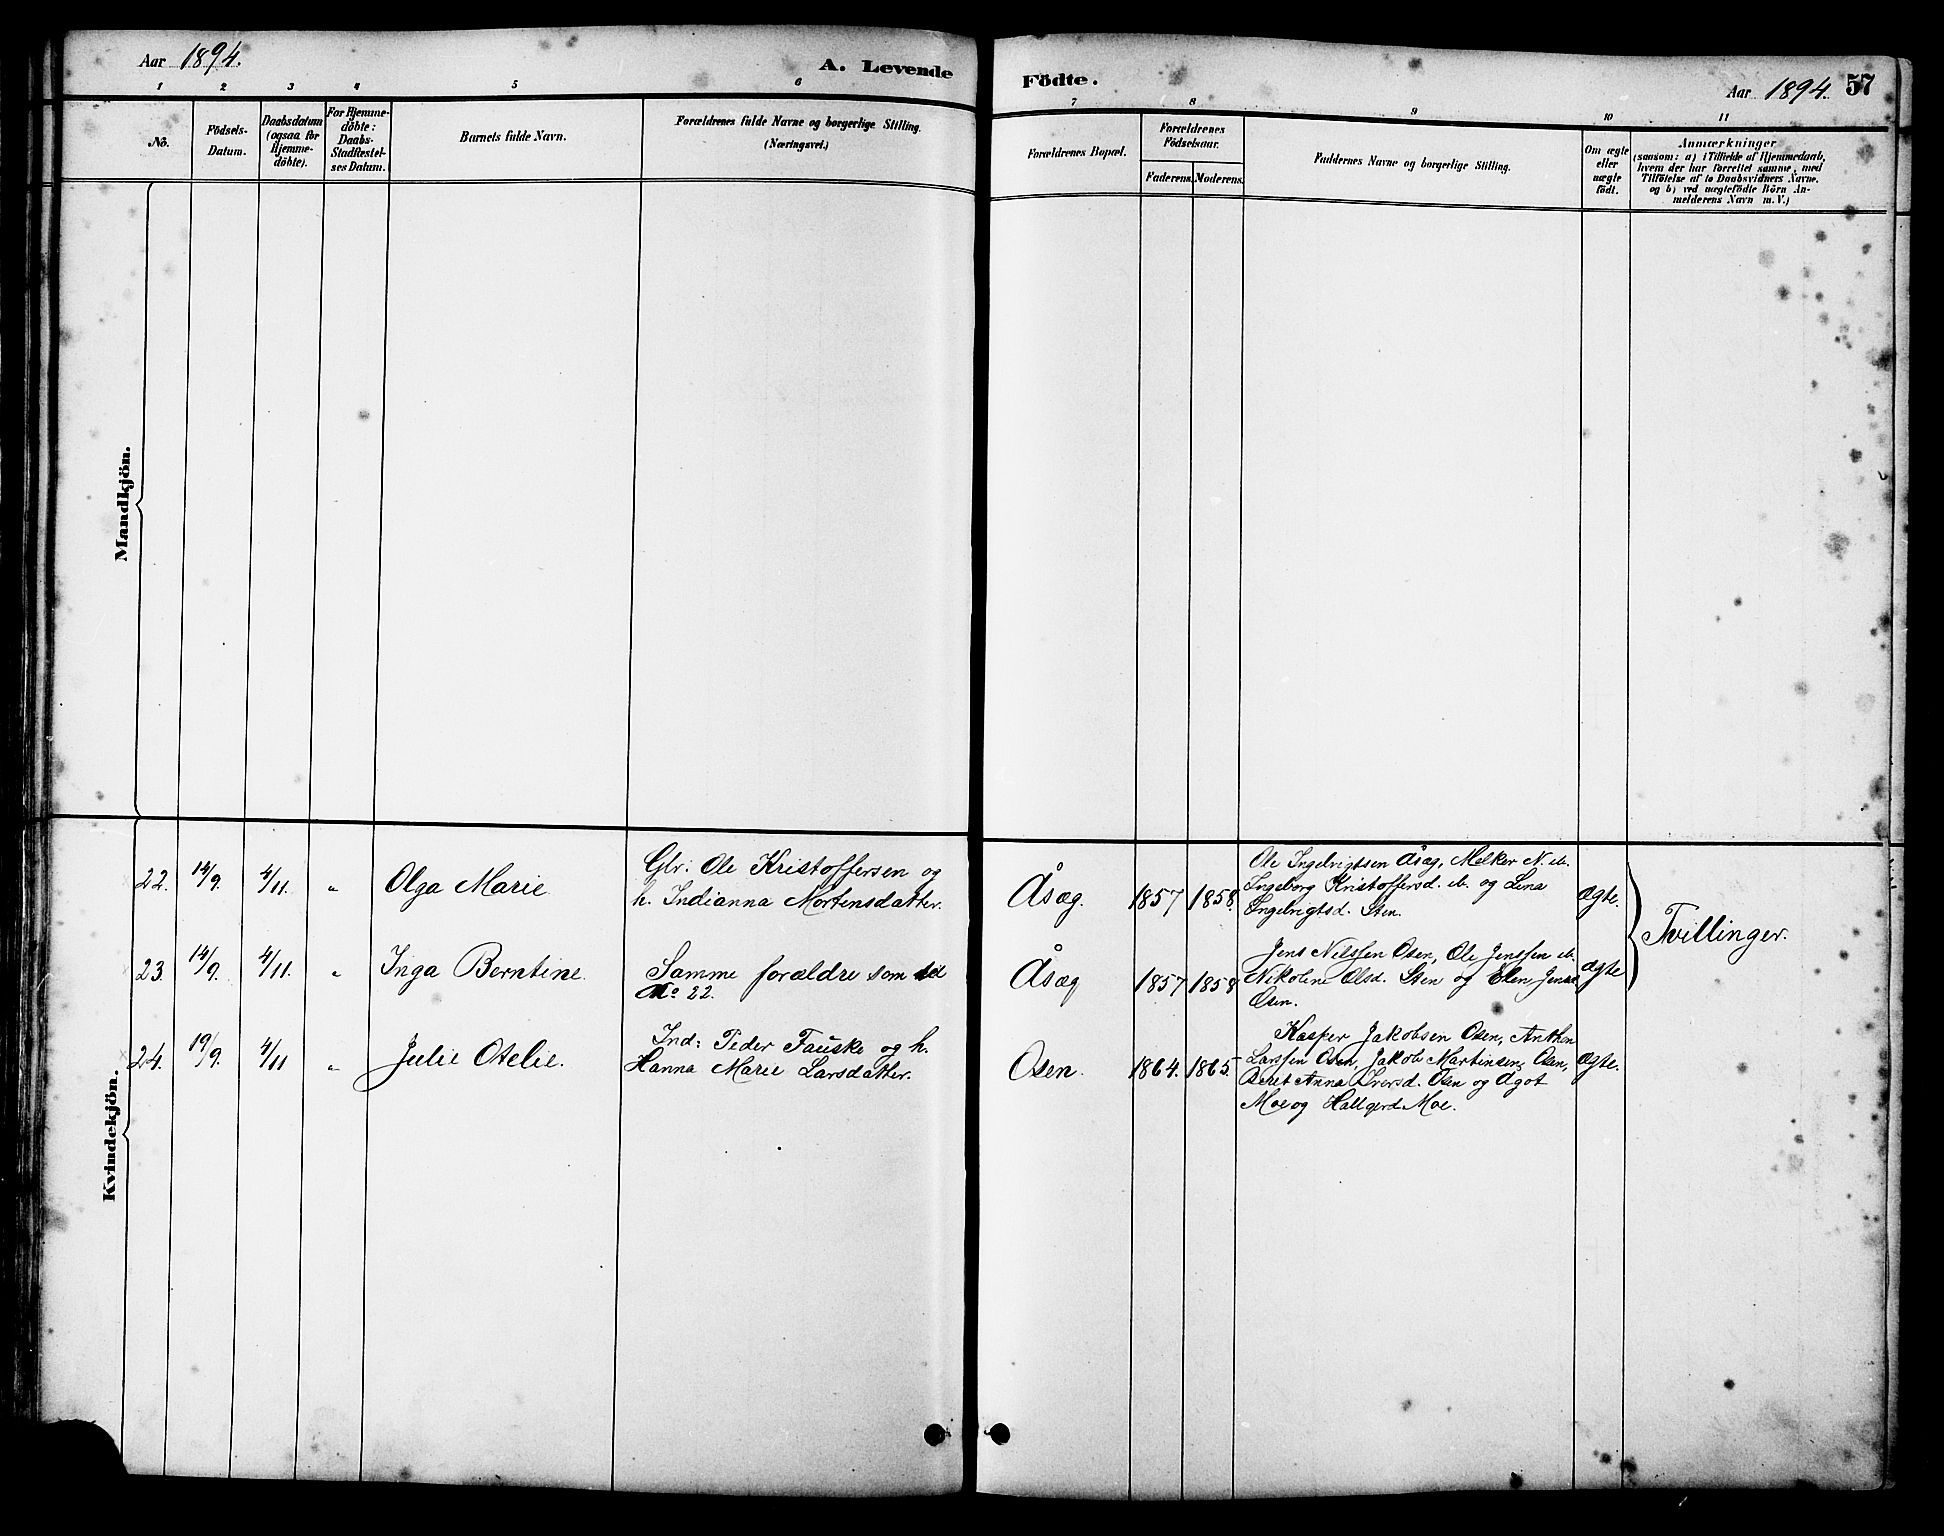 Aar 1894.
A. Levende
Födte.
Aar 1894. 57
1 2 3 4 5 6 7 8 9 10 11
No.
Födsels-
Datum.
Daabsdatum
(ogsaa for
Hjemme-
döbte).
For Hjemme-
döbte:
Daabs-
Stadfæstel-
ses Datum.
Barnets fulde Navn.
Forældrenes fulde Navne og borgerlige Stilling.
(Næringsvei.)
Forældrenes Bopæl.
Forældrenes
Födselsaar.
Faderens. Moderens.
Faddernes Navne og borgerlige Stilling.
Om ægte
eller
uægte
födt.
Anmærkninger
(saasom: a) i Tilfælde af Hjemmedaab,
hvem der har forrettet samme, med
Tilföielse af to Daabsvidners Navne.
og b) ved uægtefödte Börn An-
melderens Navn m. V.)
Mandkjön.
Kvindekjön.
22. 14/9. 4/11. „ Olga Marie
Gbr: Ole Kristoffersen og
h. Indianna Mortensdatter.
Åsæg. 1857 1858.
Ole Ingebrigtsen Åsæg, Melker N. ib.
Ingeborg Kristoffersd. ib. og Lina
Ingebrigtsd. Sten.
Ægte.
Tvillinger.
23. 14/9. 4/11. „ Inga Berntine
Samme forældre som ved
No 22.
Åsæg 1857 1858
Jens Nilssen Osen, Ole Jenssen ib.
Nikoline Olsd. Sten og Elen Jensd.
Osen.
Ægte
24. 19/9. 4/11 „ Julie Otelie.
Ind: Peder Fauske og h.
Hanna Marie Larsdatter.
Osen. 1864. 1865.
Kasper Jakobsen Osen, Anthon
Larssen Osen, Jakob Martinsen, Osen,
Beret Anna Iversd. Osen og Agot
Moe og Hallgerd Moe.
Ægte.